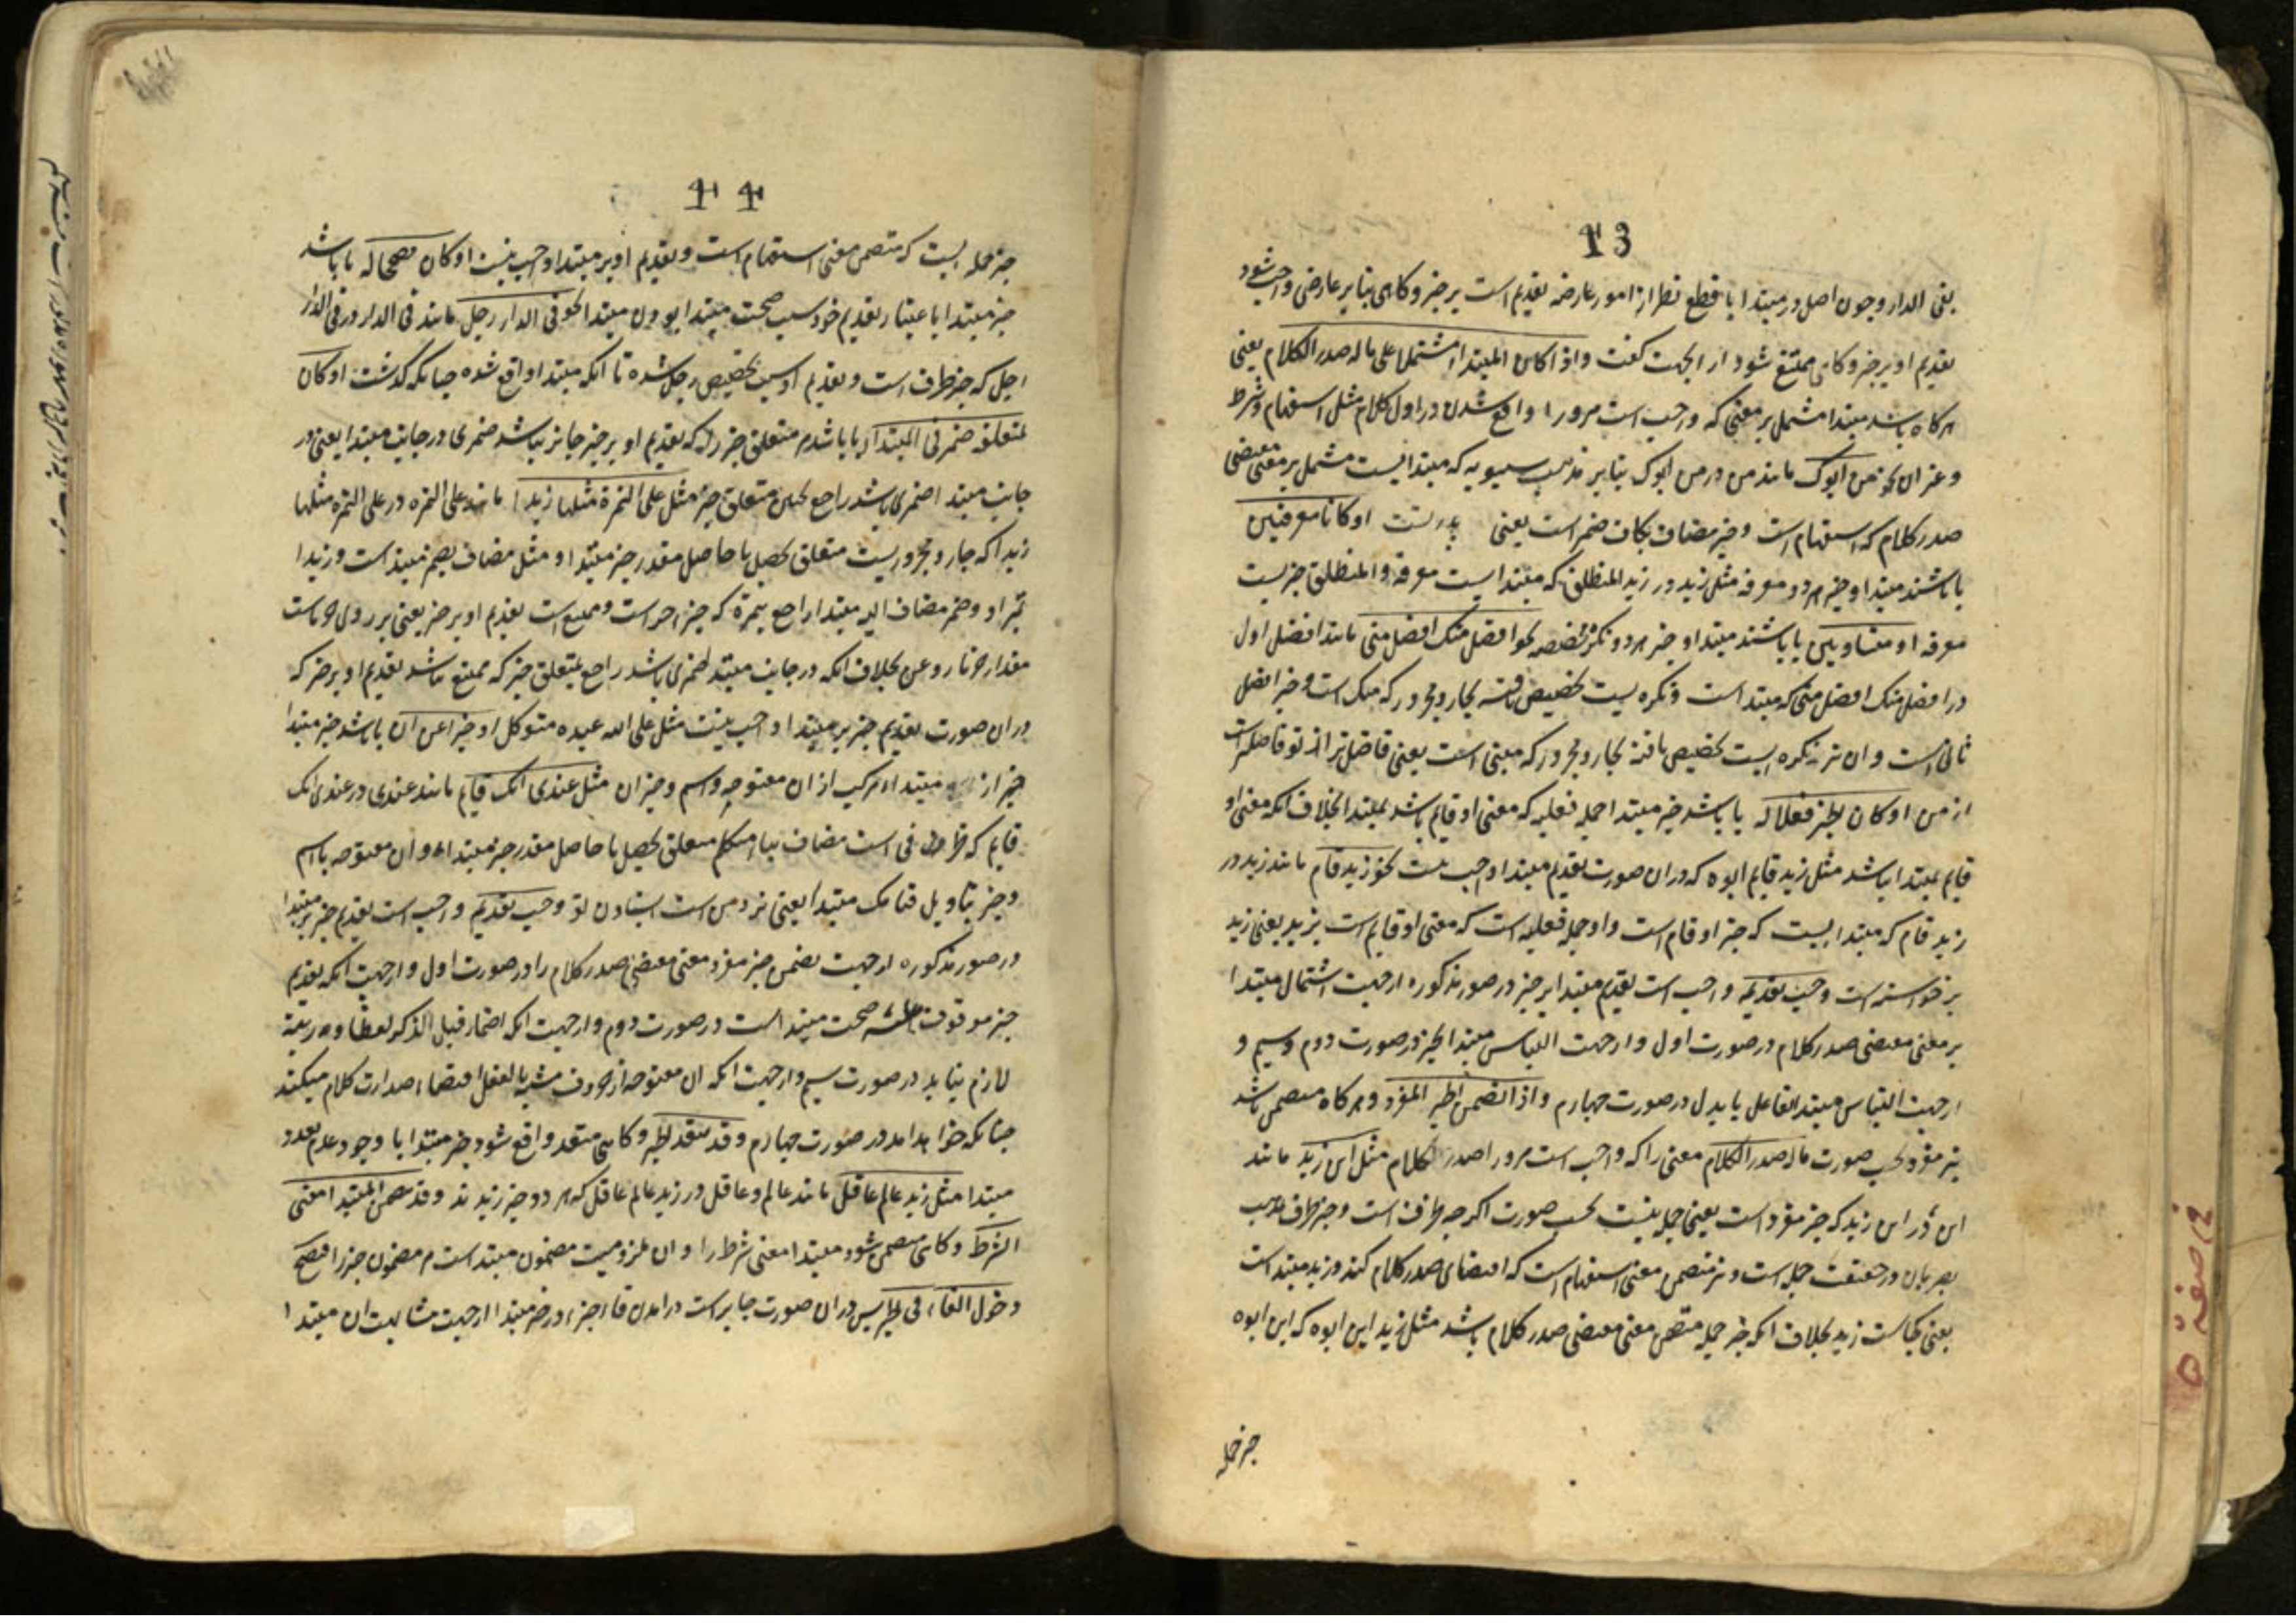 13
بفی الدار و چون اصل در مبتدا با قطع نظر از امور عارضه تقدیم است بر خبر و کاهی بنابر عارضی واجب شود
تقدیم او بر خبر و کاهی ممتنع شود از انجهت گفت و اذا کان المبتدا مشتملا علی ما له صدر الکلام یعنی
هر کاه باشد مبتدا مشتمل بر معنی که واجب است مرورا واقع شدن در اول کلام مثل استفهام و شرط
و غیر ان نحو من ابوک مانند من در من ابوک بنابر مذهب سیبویه که مبتدایست مشتمل بر معنی مقتضی
صدر کلام که استفهام است و خبر مضاف بکاف ضمیر است یعنی پدر تست او کانا معرفتین
یا باشند مبتدا و خبر هر دو معرفه مثل زید در زید المنطلق که مبتدا ست معرفه و المنطلق خبریست
معرفه او متساویین یا باشند مبتدا و خبر هر دو نکره مخصصه نحو افضل منک افضل منی مانند افضل اول
در افضل منک افضل منی که مبتدا است و نکره یست تخصیص یافته بجار و مجرور که منک است و خبر افضل
ثانی است و ان نیز نکره ایست تخصیص یافته بجار و مجرور که منی است یعنی فاضل تر از تو فاضلتر است
از من او کان الخبر فعلا له یا باشد خبر مبتدا جمله فعلیه که معنی او قایم باشد بمبتدا بخلاف انکه معنی او
قایم بمبتدا نباشد مثل زید قایم ابوه که در ان صورت تقدیم مبتدا واجب نیست نحو زید قام مانند زید در
زید قام که مبتدا یست که خبر او قام است و او جمله فعلیه است که معنی او قایم است بزید یعنی زید
برخواسته است وجب تقدیمه واجب است تقدیم مبتدا بر خبر در صور مذکوره از جهت اشتمال مبتدا
بر معنی مقتضی صدر کلام در صورت اول و از جهت التباس مبتدا بخبر در صورت دوم و سیم و
از جهت التباس مبتدا بفاعل یا بدل در صورت چهارم و اذا تضمن الخبر المفرد و هر کاه متضمن باشد
خبر مفرد بحسب صورت ما له صدر الکلام معنی را که واجب است مرورا صدر کلام مثل این زید مانند
این در این زید که خبر مفرد است یعنی جمله نیست بحسب صورت اگرچه ظرف است و خبر ظرف بمذهب
بصریان در حقیقت جمله است و نیز متضمن معنی استفهام است که اقتضای صدر کلام کند و زید مبتدا است
یعنی کجاست زید بخلاف انکه خبر جمله متضمن معنی مقتضی صدر کلام باشد مثل زید این ابوه که این ابوه
خبر جمله
14
خبر جمله ایست که متضمن معنی استفهام است و تقدیم او بر مبتدا واجب نیست او کان مصححا له یا باشد
خبر مبتدا باعتبار تقدیم خود سبب صحت مبتدا بودن مبتدا نحو فی الدار رجل مانند فی الدار در فی الدار
رجل که خبر ظرف است و تقدیم او سبب تخصیص رجل شده تا انکه مبتدا واقع شده چنانکه گذشت او کان
لمتعلقه ضمیر فی المبتدا یا باشد مر متعلق خبر را که تقدیم او بر خبر جایز نباشد ضمیری در جانب مبتدا یعنی در
جانب مبتدا ضمیری باشد راجع بهمین متعلق خبر مثل علی التمرة مثلها زبدا مانند علی التمره در علی التمره مثلها
زبدا که جار و مجروریست متعلق بحصل یا حاصل مقدر خبر مبتدا و مثل مضاف بضمیر مبتدا است و زبدا
تمیز او و ضمیر مضاف الیه مبتدا راجع بتمرة که جزء خبر است و ممتنع است تقدیم او بر خبر یعنی بر روی خرماست
مقدار خرما روغن بخلاف انکه در جانب مبتدا ضمیری باشد راجع بمتعلق خبر که ممتنع نباشد تقدیم او بر خبر که
در ان صورت تقدیم خبر بر مبتدا واجب نیست مثل علی الله عبده متوکل او خبرا عن ان یا باشد خبر مبتدا
خبر از مبتداء مرکب از ان مفتوحه و اسم و خبر ان مثل عندی انک قایم مانند عندی در عندی انک
قایم که ظرفی است مضاف بیاء متکلم متعلق بحصل یا حاصل مقدر خبر مبتداء و ان مفتوحه با اسم
و خبر بتاویل قیامک مبتدا یعنی نزد من است ایستادن تو وجب تقدیمه واجب است تقدیم خبر بر مبتدا
در صور مذکوره از جهت تضمن خبر مفرد معنی مقتضی صدر کلام را در صورت اول و از جهت انکه تقدیم
خبر موقوف علیه صحت مبتدا است در صورت دوم و از جهت انکه اضمار قبل الذکر لفظا و مرتبة
لازم نیاید در صورت سیم و از جهت انکه ان مفتوحه از حروف مشبه بالفعل اقتضاء صدارت کلام میکند
چنانکه خواهد امد در صورت چهارم و قد یتعدد الخبر و کاهی متعدد واقع شود خبر مبتدا با وجود عدم تعدد
مبتدا مثل زید عالم عاقل مانند عالم و عاقل در زید عالم عاقل که هر دو خبر زیدند و قد یتضمن المبتدا معنی
الشرط و کاهی متضمن شود مبتدا معنی شرط را و ان ملزومیت مضمون مبتدا است مر مضمون خبر را فیصح
دخول الفاء فی الخبر پس در ان صورت جایز است در امدن فاء جزا در خبر مبتدا از جهت مشابهت ان مبتدا